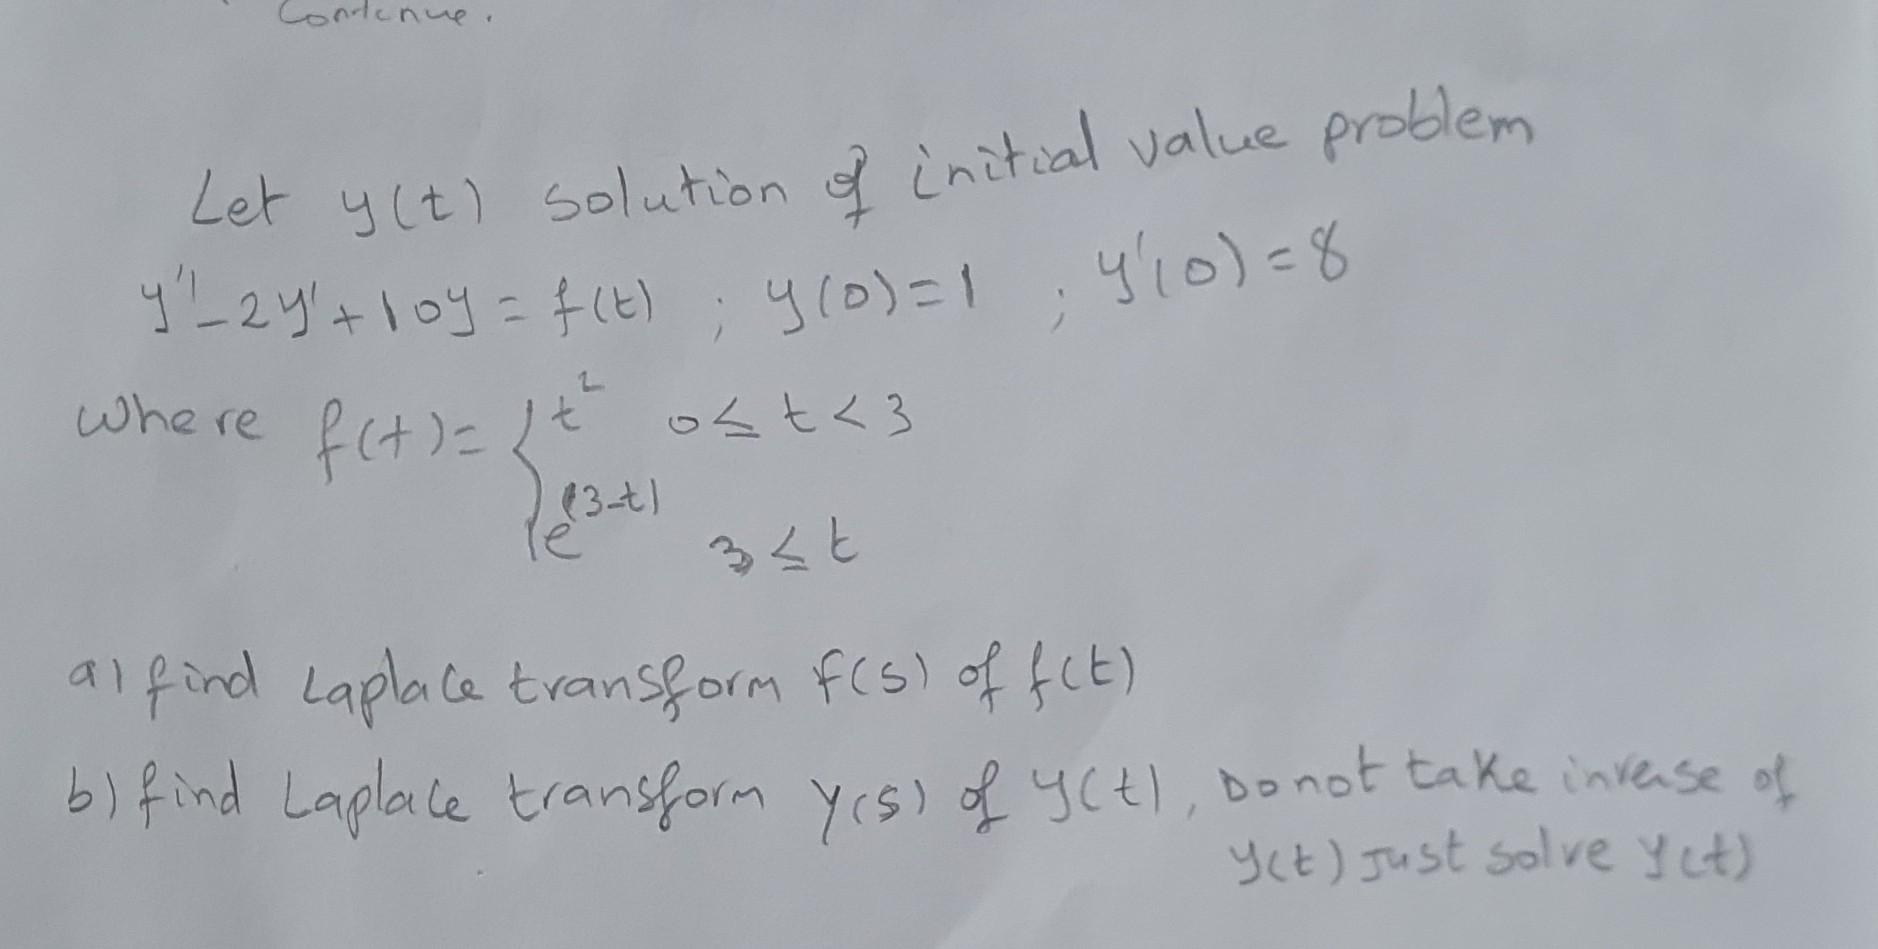 Continue.
Let y(t) solution of initial value problem
y'' - 2y' + 10y = f(t) ; y(0) = 1 ; y'(0) = 8
where f(t) = { t² 0 ≤ t < 3
e^(3-t) 3 ≤ t
a) find Laplace transform F(s) of f(t)
b) find Laplace transform Y(s) of y(t), Do not take inverse of
y(t) Just solve y(t)